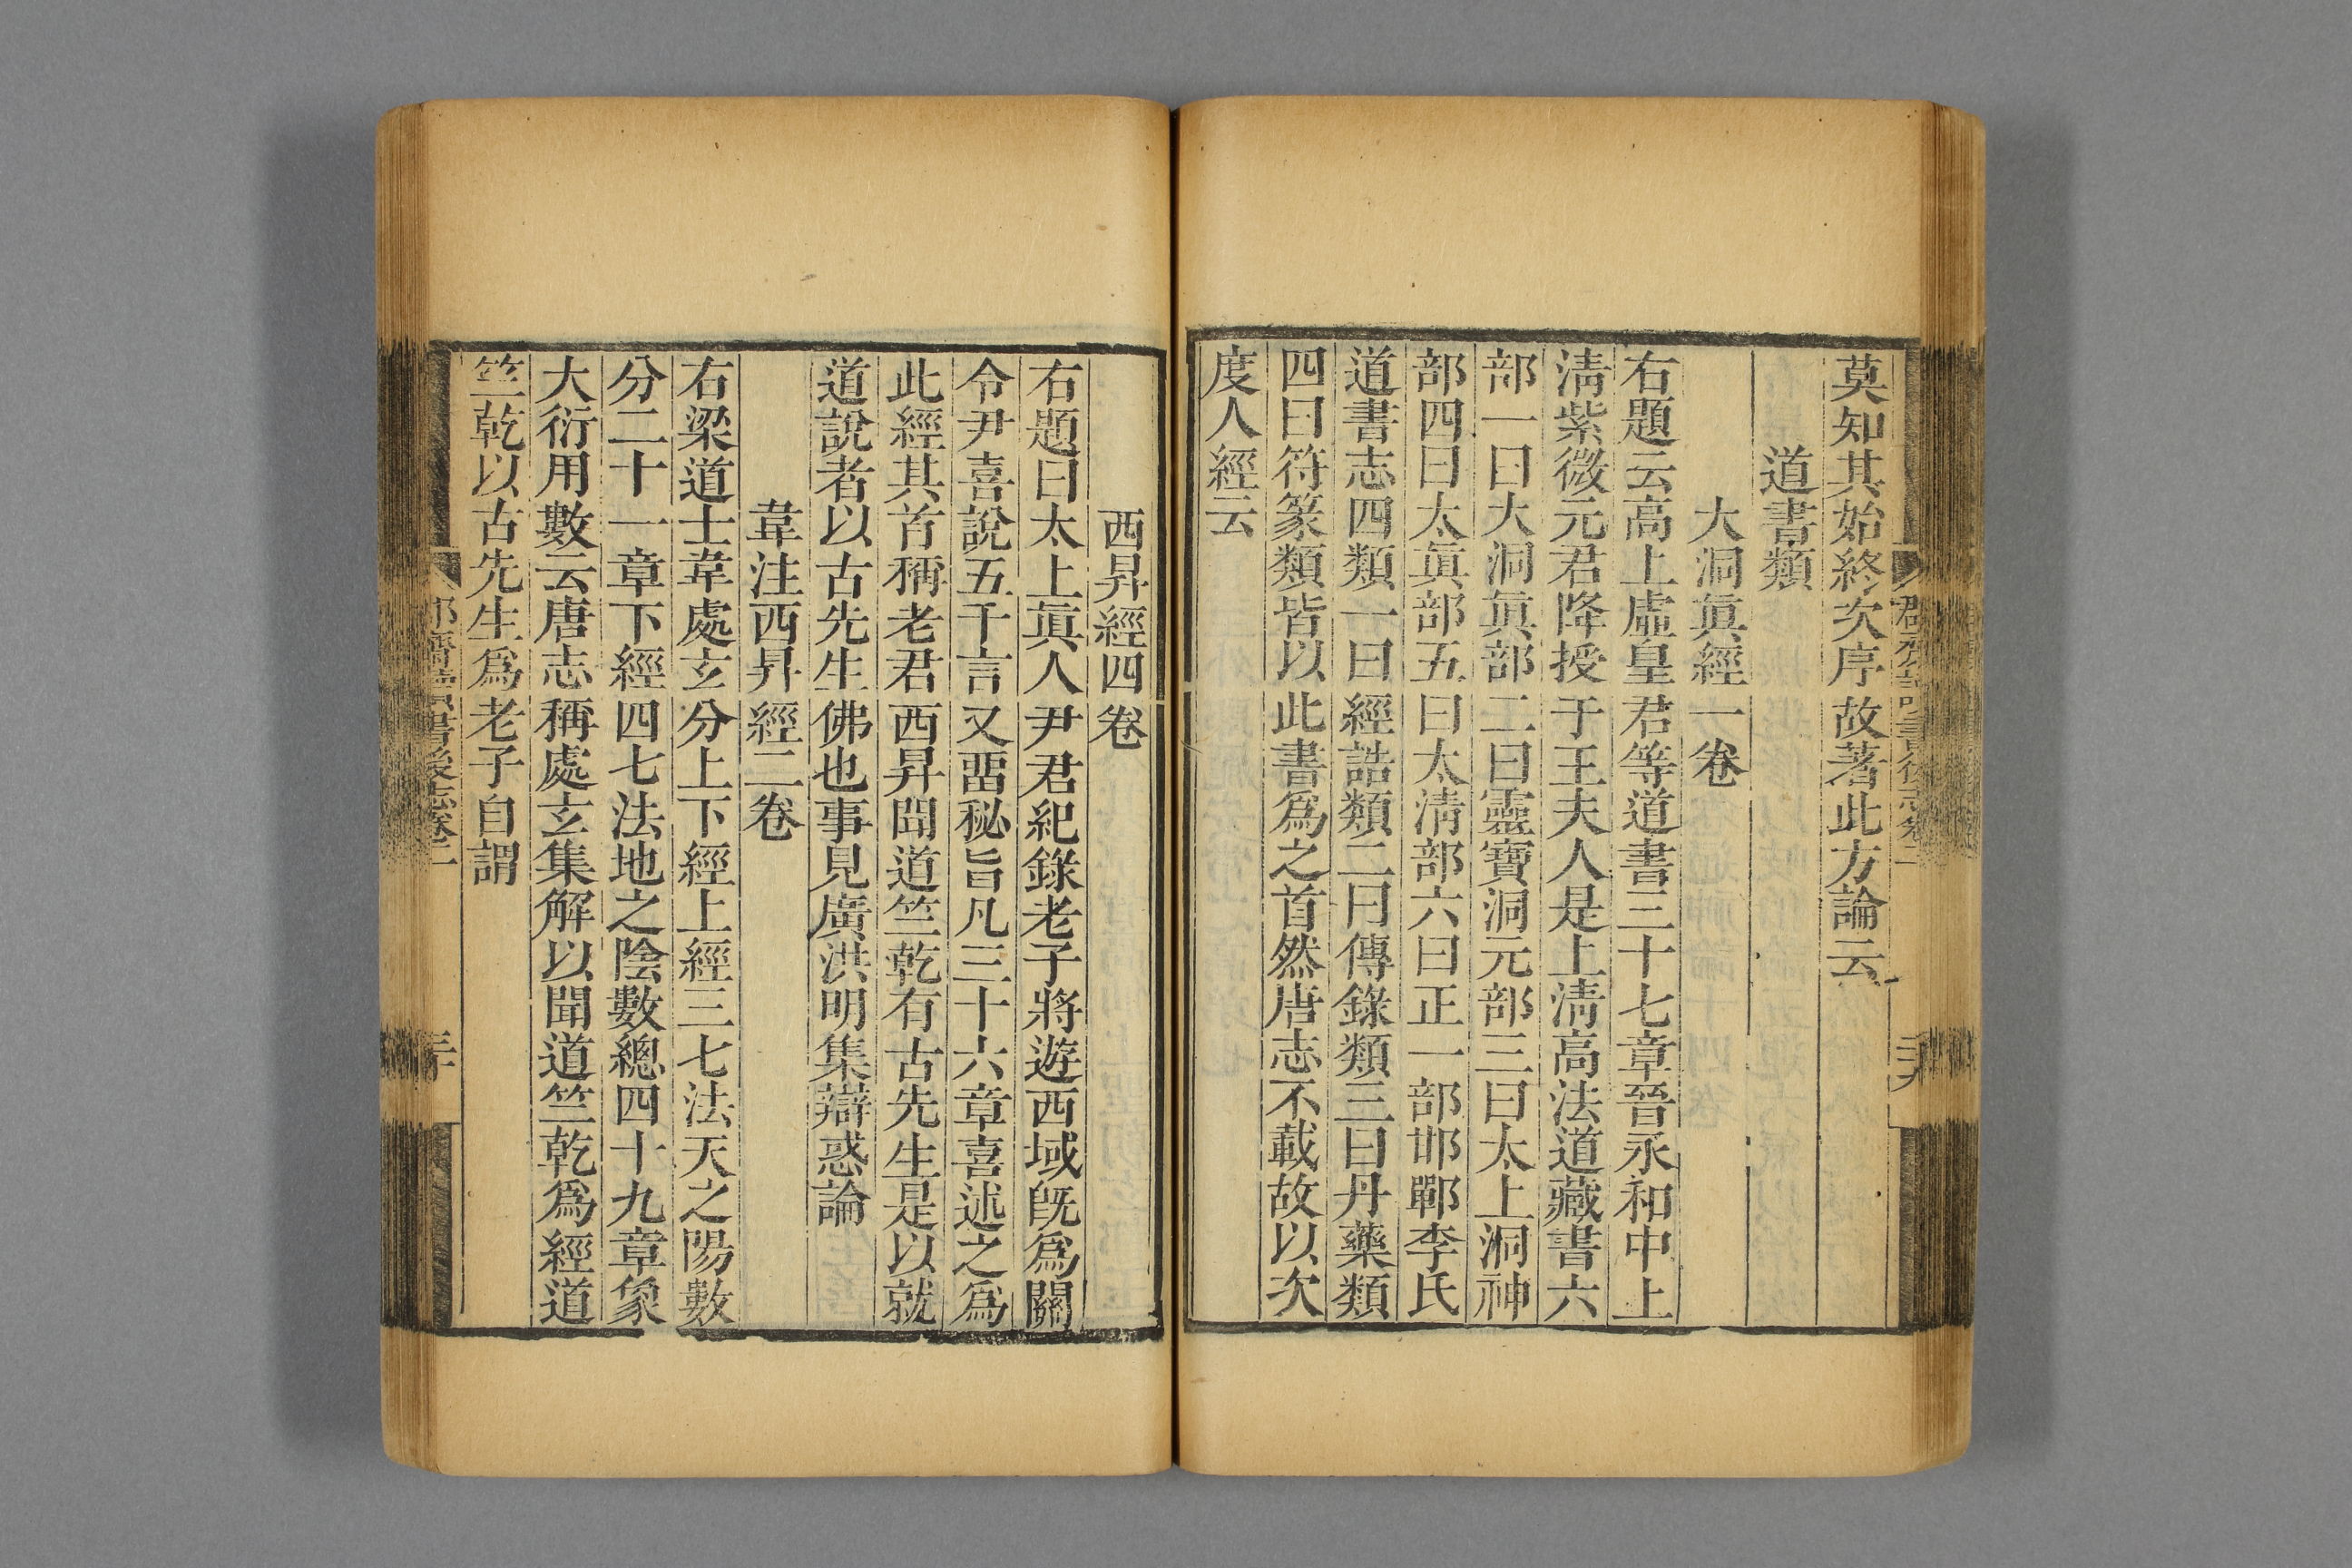 莫知其始終次序故著此方論云
道書類
大洞眞經一卷
右題云高上虛皇君等道書三十七章晉永和中上
淸紫微元君降授于王夫人是上淸高法道藏書六
部一曰大洞眞部二曰靈寶洞元部三曰太上洞神
部四曰太眞部五曰太淸部六曰正一部邯鄲李氏
道書志四類一曰經誥類二曰傳錄類三曰丹藥類
四曰符篆類皆以此書爲之首然唐志不載故以次
度人經云
西昇經四卷
右題曰太上眞人尹君紀錄老子將遊西域旣爲關
令尹喜說五千言又畱秘旨凡三十六章喜述之爲
此經其首稱老君西昇聞道竺乾有古先生是以就
道說者以古先生佛也事見廣洪明集辯惑論
韋注西昇經二卷
右梁道士韋處玄分上下經上經三七法天之陽數
分二十一章下經四七法地之陰數總四十九章象
大衍用數云唐志稱處玄集解以聞道竺乾爲經道
竺乾以古先生爲老子自謂